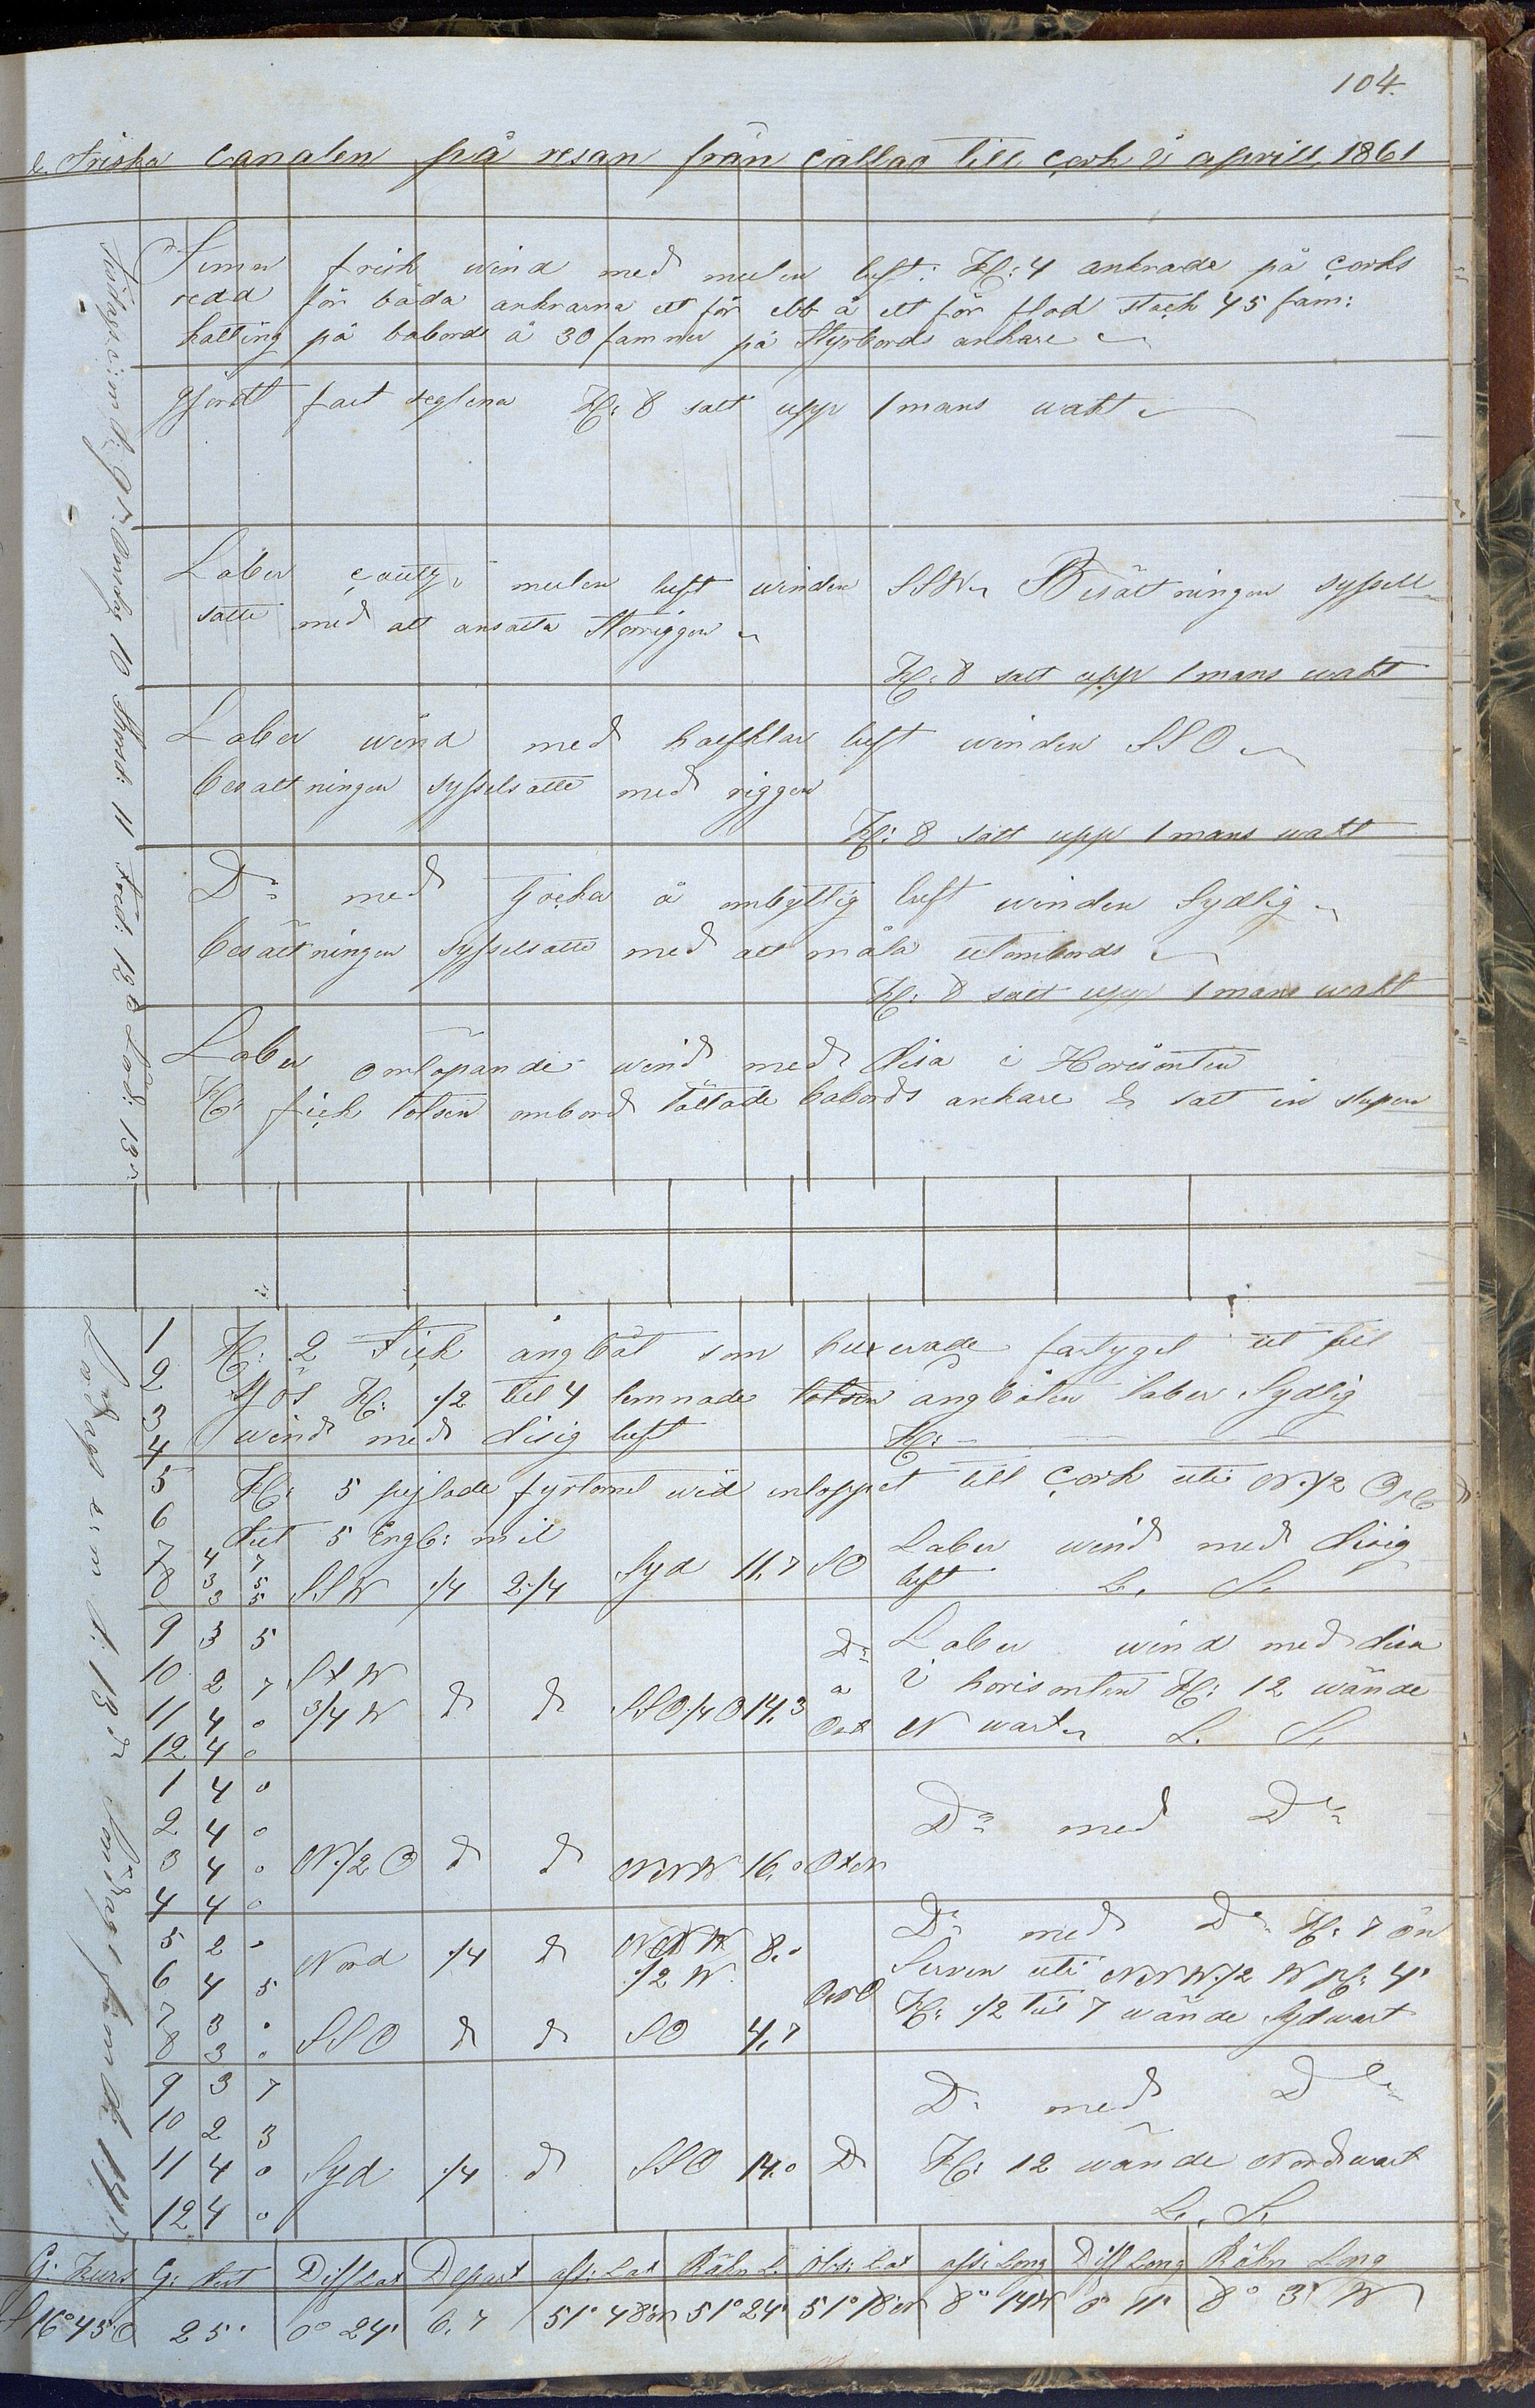 104.
Friska Canalen på resan från Callao till Cork i aprill 1861
Jemn frisk wind med mulen luft: Kl: 4 ankrade på Corks
redd för båda ankrarna ett för ebb å ett för flod stack 45 fam:
kätting på babord å 30 famner på Styrbords ankare
gjordt fast seglena Kl: 8 satt upp 1 mans wakt
Laber mulen luft winden SSW Besättningen syssell-
satte med att ansätta Storriggen
Kl: 8 satt upp 1 mans wakt
Laber wind med halfklar luft winden SSO
besättningen sysselsatte med riggen
Kl: 8 satt upp 1 mans wakt
Do med tocka å ombyttlig luft winden Sydlig
besättningen sysselsatte med att måla utombords
Kl: 8 satt upp 1 mans wakt
Laber omlöpande wind med disa i Horisonten
Kl: fick lotsen ombord lättade babords ankare & satt in slupen
Tisdags e:m d: 9 Onsdag 10 Thorsd: 11 Fred: 12 Lörd: 13
1 Kl: 2 Fick ångbåt som buxerade fartyget ut till
2 Sjös Kl: 1/2 till 4 lemnade lotsen ångbåten laber Sydlig
3 wind med disig luft Kl:
4
5 Kl: 5 pejlade fyrtornet wid inloppet till Cork uti N 1/2 O
6 dist 5 Engl: mil
7 4 7 Laber wind med disig
8 3 5 SSW 1/4 2 1/4 Syd 11,7 SO luft L. S.
3 5
9 3 5 Do Laber wind med disa
10 2 7 StW a i horisonten Kl: 12 wände
11 4 0 3/4 W d d SSO 1/4 O 14,3 Ost N wart L. S.
12 4 0
1 4 0
2 4 0 Do med Do
3 4 0 N 1/2 O d d NNW 16,0 OtN
4 4 0
5 2 0 Nord 1/4 d NtW 8,0 Do med Do Kl: 7 ön
6 4 5 1/2 W ONO uti NNW 1/2 W 4'
7 3 0 Kl: 1/2 till 7 wände Sydwart
8 3 0 SSO d d SO 4,7
9 3 7 Do med Do
10 2 3
11 4 0 Syd 1/4 d SSO 14,0 D Kl: 12 wände Nordwart
12 4 0 L. S.
Lördags e:m d: 13 Söndags f:m d: 14
G: Kurs G: dist Diff Lat Depart aff: Lat Räkn L. Obs: Lat aff: Long Diff Long Räkn Long
S 16° 45' O 25' 0° 24' 6,7 51° 48' N 51° 24' 51° 18' N 8° 14' W 0° 11' 8° 3' W